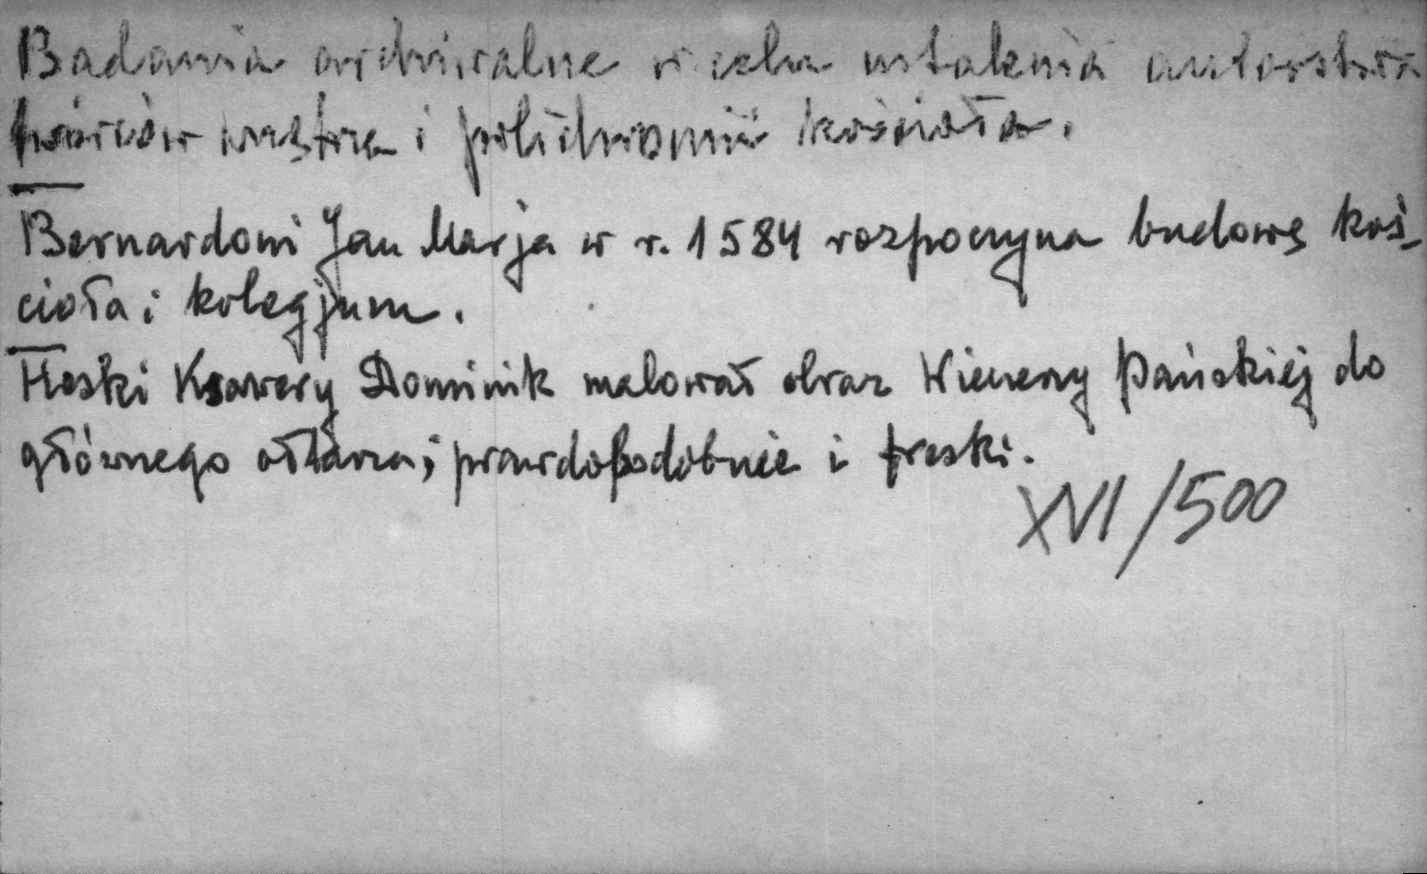 Badania archiwalne w celu ustalenia autorstwa
twórców wnętrza i polichromii kościoła.
Bernardoni Jan Marja w r. 1584 rozpoczyna budowę koś-
cioła i kolegjum.
Heski Ksawery Dominik malował obraz Wieczerzy Pańskiej do
głównego ołtarza; prawdopodobnie i freski.
XVI/500